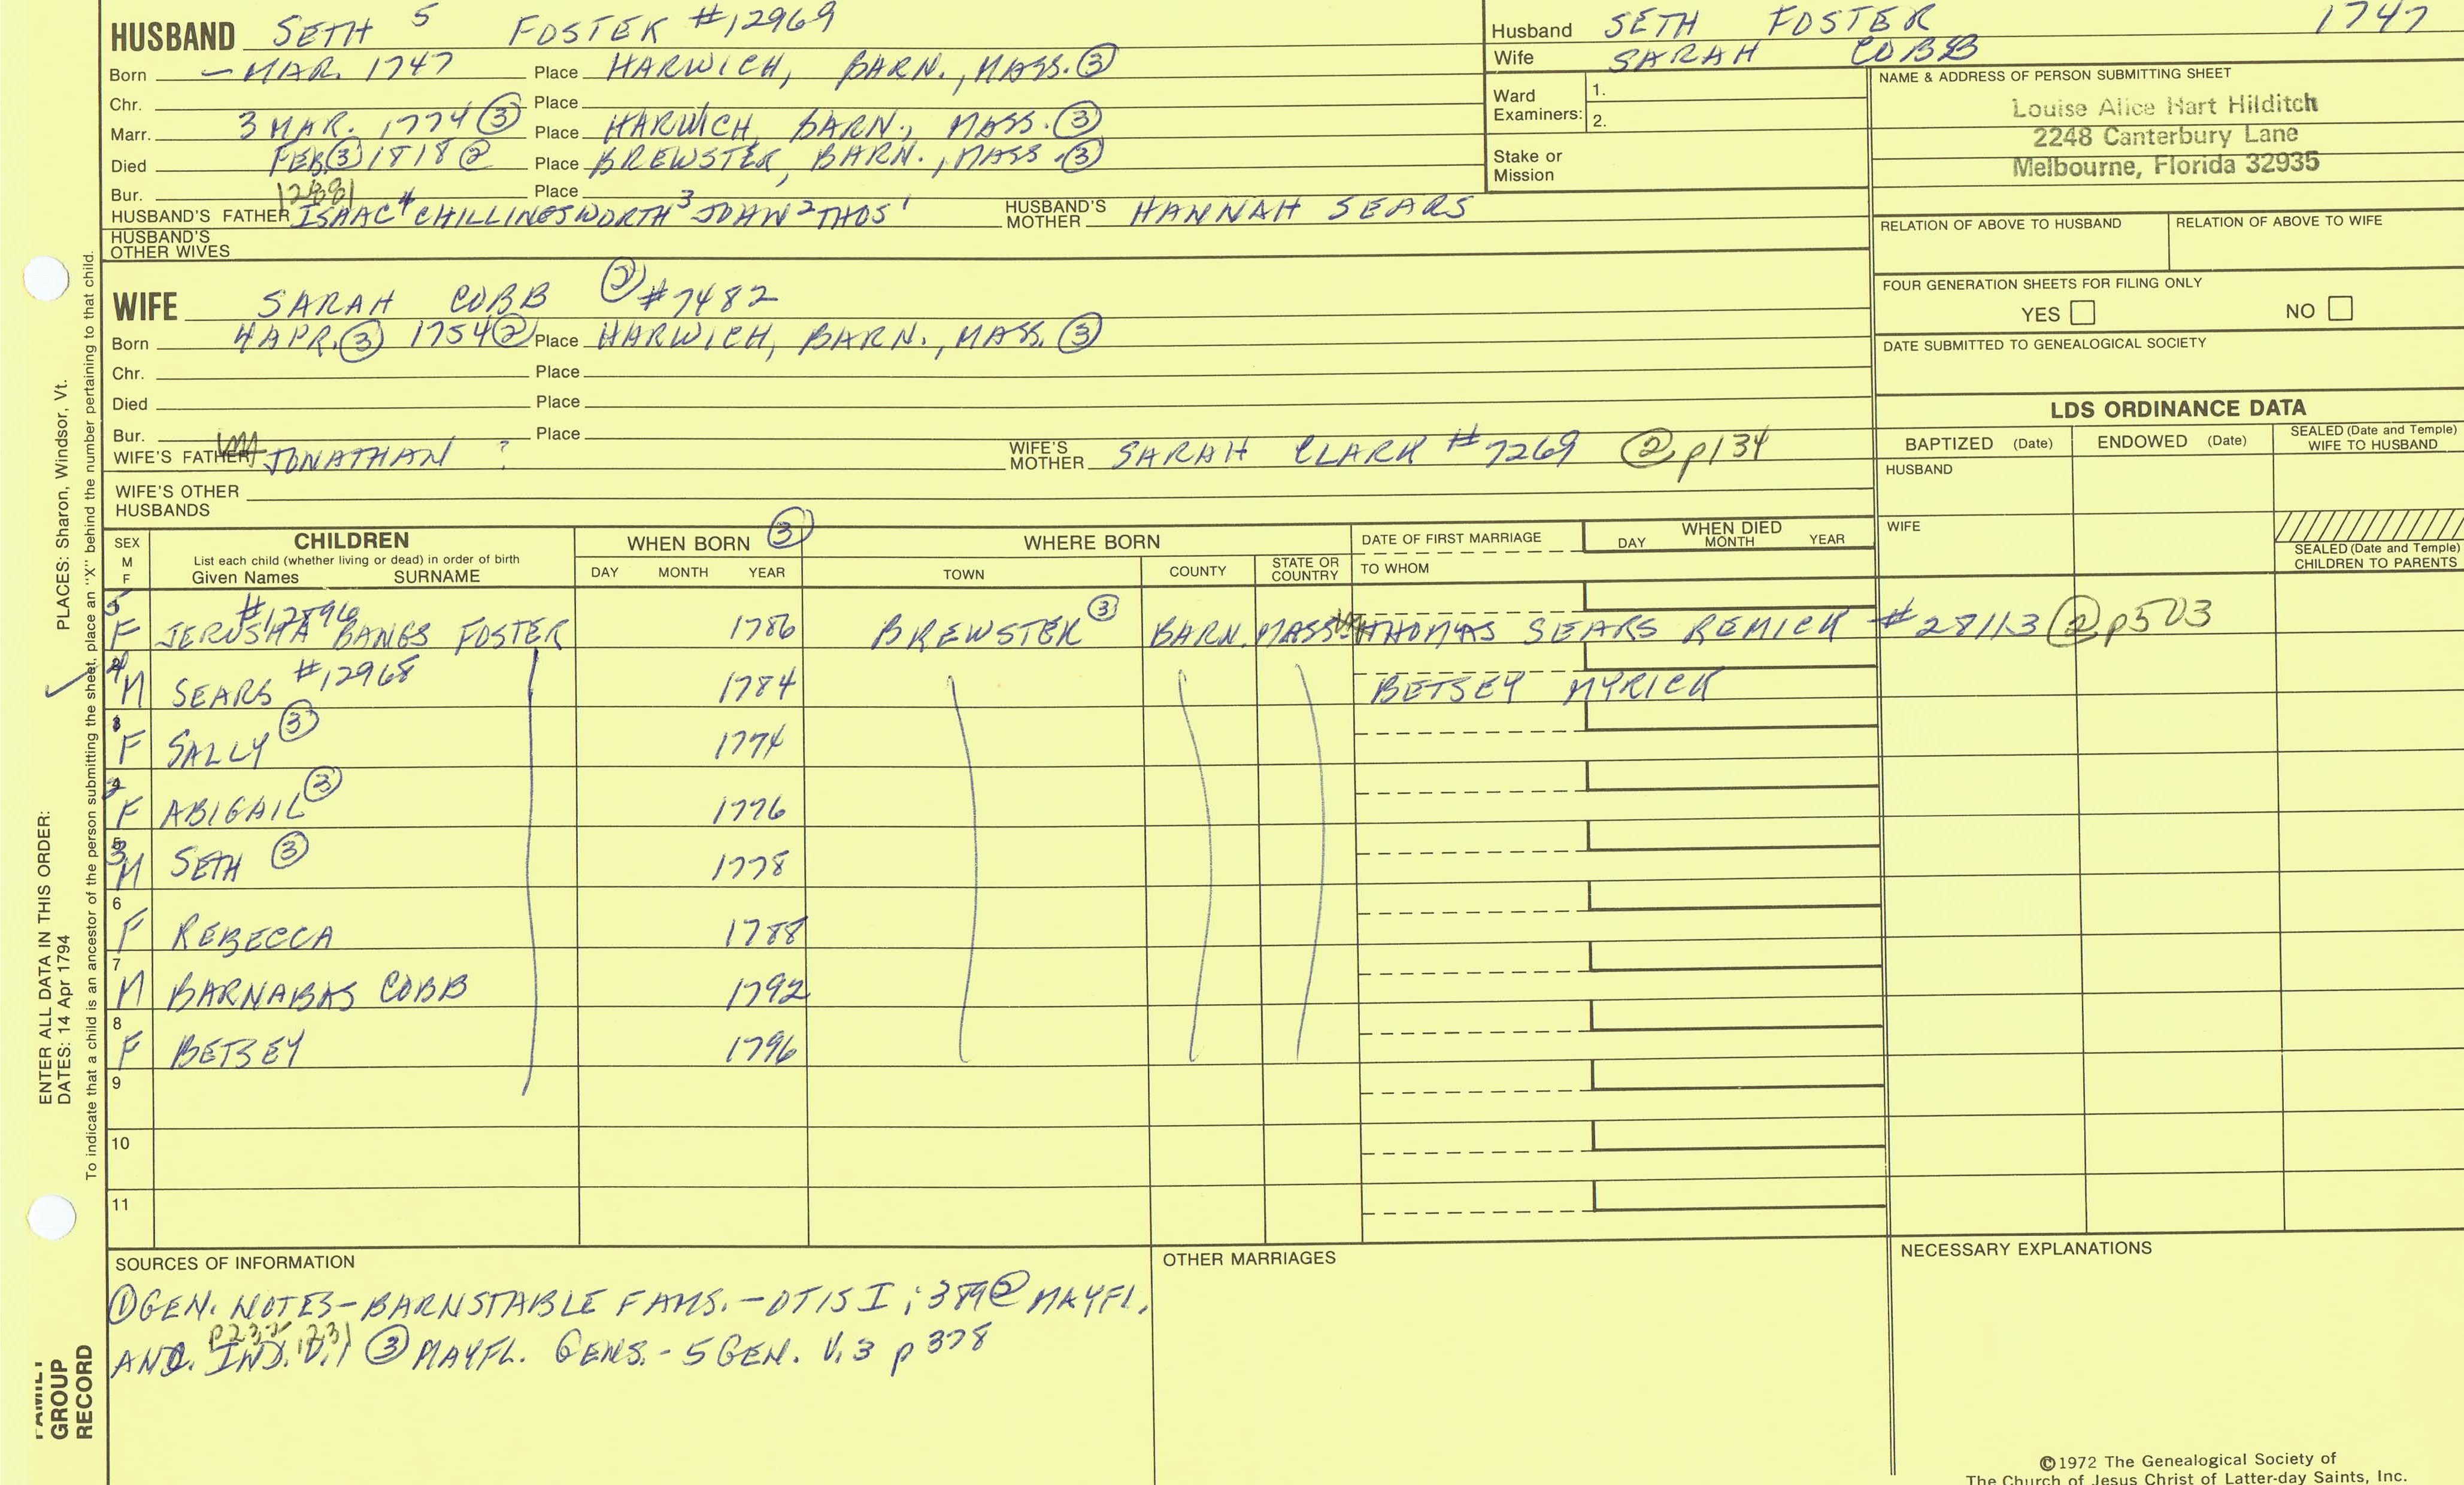 HUSBAND SETH 5 FOSTER #12969
Born – MAR. 1747 Place HARWICH, BARN., MASS. ③
Chr. Place
Marr. 3 MAR. 1774 ③ Place HARWICH, BARN., MASS. ③
Died FEB. ③ 1818 ② Place BREWSTER, BARN., MASS. ③
Bur. Place
HUSBAND'S FATHER ISAAC 4 CHILLINGSWORTH 3 JOHN 2 THOS 1 HUSBAND'S MOTHER HANNAH SEARS
HUSBAND'S OTHER WIVES
Husband SETH FOSTER 1747
Wife SARAH COBB
Ward Examiners: 1.
2.
Stake or Mission
NAME & ADDRESS OF PERSON SUBMITTING SHEET
Louise Alice Hart Hilditch
2248 Canterbury Lane
Melbourne, Florida 32935
RELATION OF ABOVE TO HUSBAND RELATION OF ABOVE TO WIFE
FOUR GENERATION SHEETS FOR FILING ONLY
YES NO
DATE SUBMITTED TO GENEALOGICAL SOCIETY
WIFE SARAH COBB ② #7482
Born 4 APR. ③ 1754 ② Place HARWICH, BARN., MASS. ③
Chr. Place
Died Place
Bur. Place
WIFE'S FATHER JONATHAN ? WIFE'S MOTHER SARAH CLARK #7269 ② p134
WIFE'S OTHER HUSBANDS
LDS ORDINANCE DATA
BAPTIZED (Date) ENDOWED (Date) SEALED (Date and Temple) WIFE TO HUSBAND
HUSBAND
WIFE
SEALED (Date and Temple) CHILDREN TO PARENTS
SEX M F CHILDREN List each child (whether living or dead) in order of birth Given Names SURNAME WHEN BORN ③ DAY MONTH YEAR WHERE BORN TOWN COUNTY STATE OR COUNTRY DATE OF FIRST MARRIAGE TO WHOM WHEN DIED DAY MONTH YEAR
5 F JERUSHA BANGS FOSTER #12896 1786 BREWSTER ③ BARN. MASS. THOMAS SEARS REMICK #28113 ② p503
4 M SEARS #12968 1784 BETSEY MYRICK
1 F SALLY ③ 1774
2 F ABIGAIL ③ 1776
3 M SETH ③ 1778
6 F REBECCA 1788
7 M BARNABAS COBB 1792
8 F BETSEY 1796
9
10
11
SOURCES OF INFORMATION
① GEN. NOTES – BARNSTABLE FAMS. – OTIS I ; 389 ② MAYFL.
p232 231
ANC. IND. V.1 ③ MAYFL. GENS. – 5 GEN. V.3 p 378
OTHER MARRIAGES
NECESSARY EXPLANATIONS
©1972 The Genealogical Society of
The Church of Jesus Christ of Latter-day Saints, Inc.
ENTER ALL DATA IN THIS ORDER:
DATES: 14 Apr 1794
PLACES: Sharon, Windsor, Vt.
To indicate that a child is an ancestor of the person submitting the sheet, place an "X" behind the number pertaining to that child.
FAMILY
GROUP
RECORD